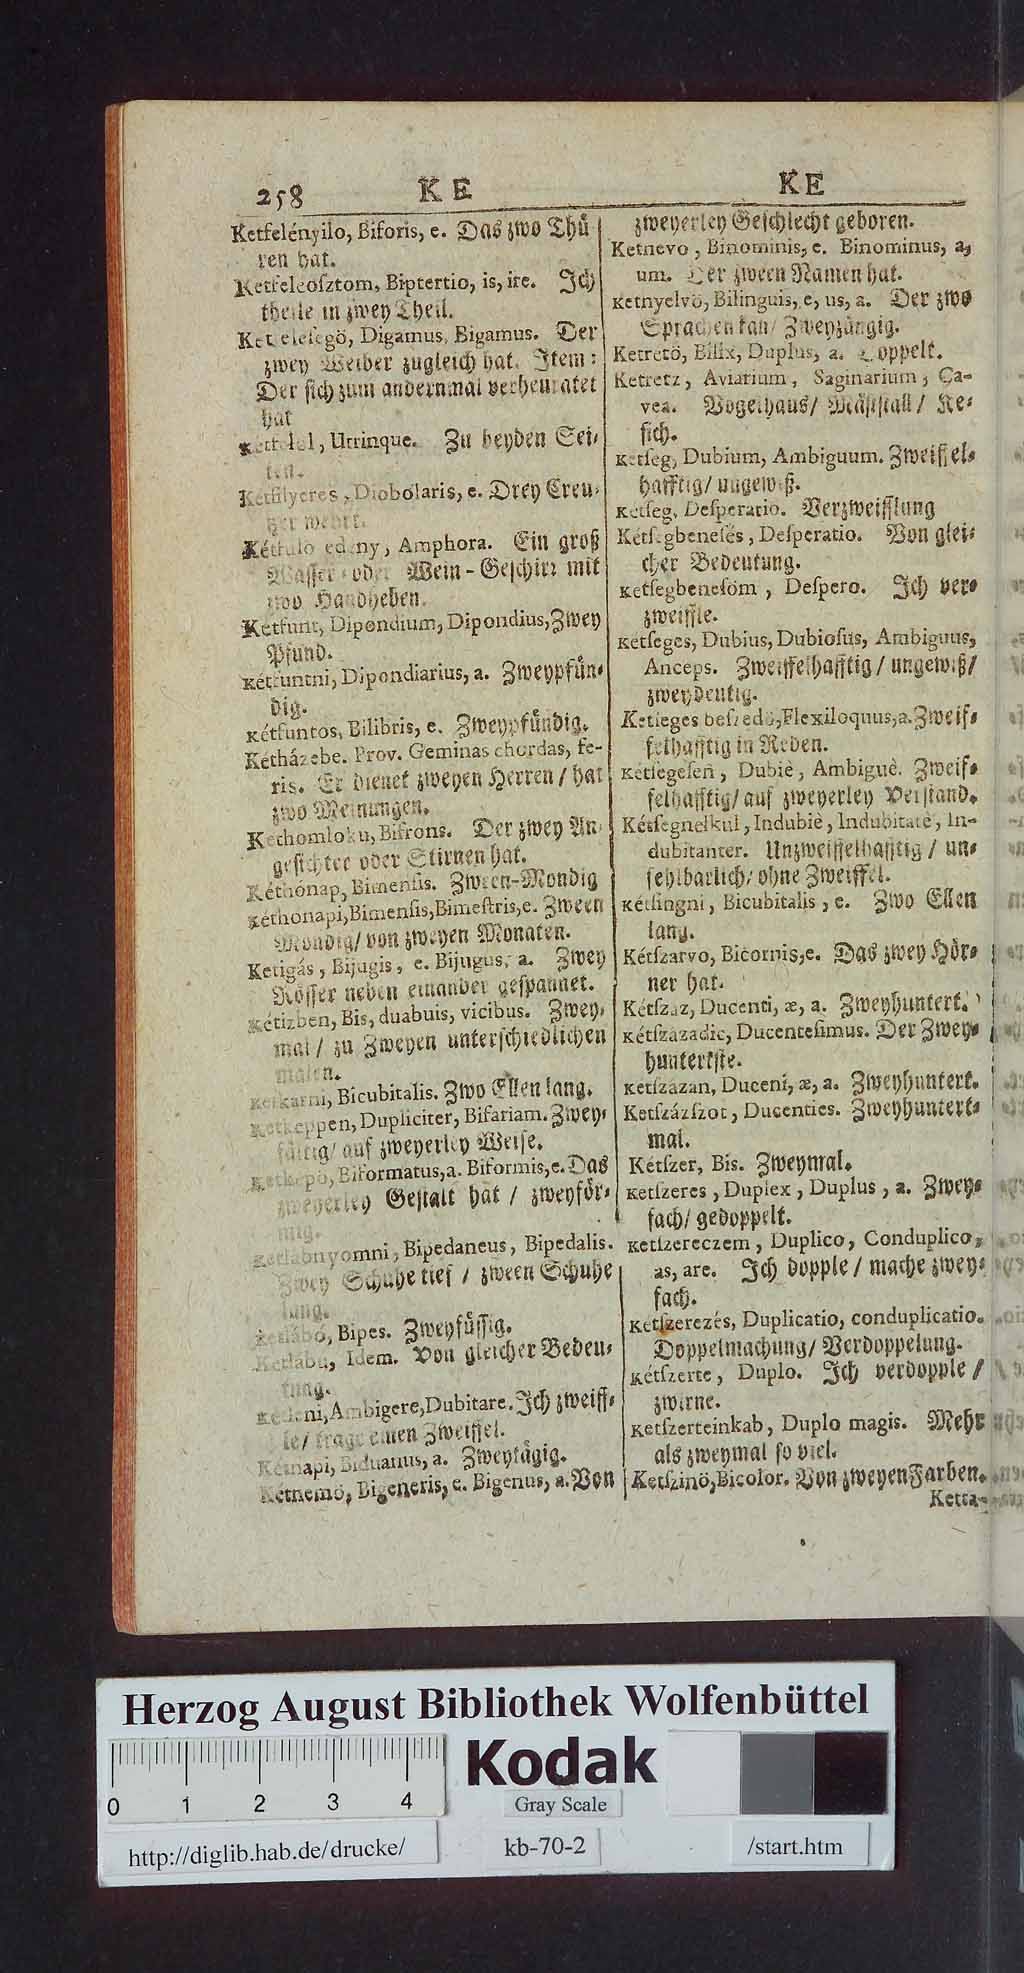 258 KE KE
Ketfelényilo, Biforis, e. Das zwo Thü-
ren hat.
Ketfeleoſztom, Biptertio, is, ire. Ich
theile in zwey Theil.
Digamus, Bigamus. Der
zwey Weiber zugleich hat. Item:
Der ſich zum andernmal verheuratet
hat
Utrinque. Zu beyden Sei-
ten.
Diobolaris, e. Drey Creu-
tzer wehrt.
edény, Amphora. Ein groß
Waſſer- oder Wein-Geſchirr mit
two Handheben.
Ketfunt, Dipondium, Dipondius, Zwey
Pfund.
Kétfuntni, Dipondiarius, a. Zweypfün-
dig.
Kétfuntos, Bilibris, e. Zweypfündig.
Kétházebe. Prov. Geminas chordas, fe-
ris. Er dienet zweyen Herren / hat
zwo Meinungen.
Kethomloku, Bifrons. Der zwey An-
geſichter oder Stirnen hat.
Kéthónap, Bimenſis. Zween-Mondig
Kéthónapi, Bimenſis, Bimeſtris, e. Zween
Mondig/ von zweyen Monaten.
Ketigás, Bijugis, e. Bijugus, a. Zwey
Röſſer neben einander geſpannet.
Kétizben, Bis, duabuis, vicibus. Zwey-
mal / zu Zweyen unterſchiedlichen
malen.
Ketkarni, Bicubitalis. Zwo Ellen lang.
Ketkeppen, Dupliciter, Bifariam. Zwey-
fältig/ auf zweyerley Weiſe.
Ketkepö, Biformatus, a. Biformis, e. Das
zweyerley Geſtalt hat / zweyför-
mig.
Ketlábnyomni, Bipedaneus, Bipedalis.
Zwey Schuhe tief / zween Schuhe
lang.
Ketlábó, Bipes. Zweyfüſſig.
Ketlábu, Idem. Von gleicher Bedeu-
tung.
Ambigere, Dubitare. Ich zweiff-
le/ trage einen Zweiffel.
Kétnapi, Biduanus, a. Zweytägig.
Kétnemö, Bigeneris, e. Bigenus, a. Von
zweyerley Geſchlecht geboren.
Ketnevo, Binominis, e. Binominus, a,
um. Der zween Namen hat.
Ketnyelvö, Bilinguis, e, us, a. Der zwo
Sprachen kan/ Zweyzüngig.
Ketretö, Bilix, Duplus, a. Doppelt.
Ketretz, Aviarium, Saginarium, Ca-
vea. Vogelhaus/ Mäſtſtall / Ke-
fich.
Ketſeg, Dubium, Ambiguum. Zweiffel-
hafftig/ ungewiß.
Ketſeg, Deſperatio. Verzweifflung
Kétſegbeneſés, Deſperatio. Von glei-
cher Bedeutung.
Ketſegbeneſöm, Deſpero. Ich ver-
zweiffle.
Ketſeges, Dubius, Dubioſus, Ambiguus,
Anceps. Zweiffelhafftig / ungewiß/
zweydeutig.
Ketſeges beſzedö, Flexiloquus, a. Zweif-
felhafftig in Reden.
Ketſegeſen, Dubiè, Ambiguè. Zweif-
felhafftig/ auf zweyerley Verſtand.
Kétſegnelkul, Indubiè, Indubitatè, In-
dubitanter. Unzweiffelhafftig / un-
fehlbarlich/ ohne Zweiffel.
Kétſingni, Bicubitalis, e. Zwo Ellen
lang.
Kétſzarvo, Bicornis, e. Das zwey Hör-
ner hat.
Kétſzáz, Ducenti, æ, a. Zweyhuntert.
Kétſzázadic, Ducenteſimus. Der Zwey-
hunterſte.
Ketſzázan, Duceni, æ, a. Zweyhuntert.
Ketſzázſzot, Ducenties. Zweyhuntert-
mal.
Kétſzer, Bis. Zweymal.
Ketſzeres, Duplex, Duplus, a. Zwey-
fach/ gedoppelt.
Ketſzereczem, Duplico, Conduplico,
as, are. Ich dopple / mache zwey-
fach.
Ketſzerezés, Duplicatio, conduplicatio.
Doppelmachung/ Verdoppelung.
Kétſzerte, Duplo. Ich verdopple /
zwirne.
Ketſzerteinkab, Duplo magis. Mehr
als zweymal ſo viel.
Ketſzinö, Bicolor. Von zweyen Farben.
Ketta-
Herzog August Bibliothek Wolfenbüttel
Kodak
0 1 2 3 4
Gray Scale
http://diglib.hab.de/drucke/ kb-70-2 /start.htm